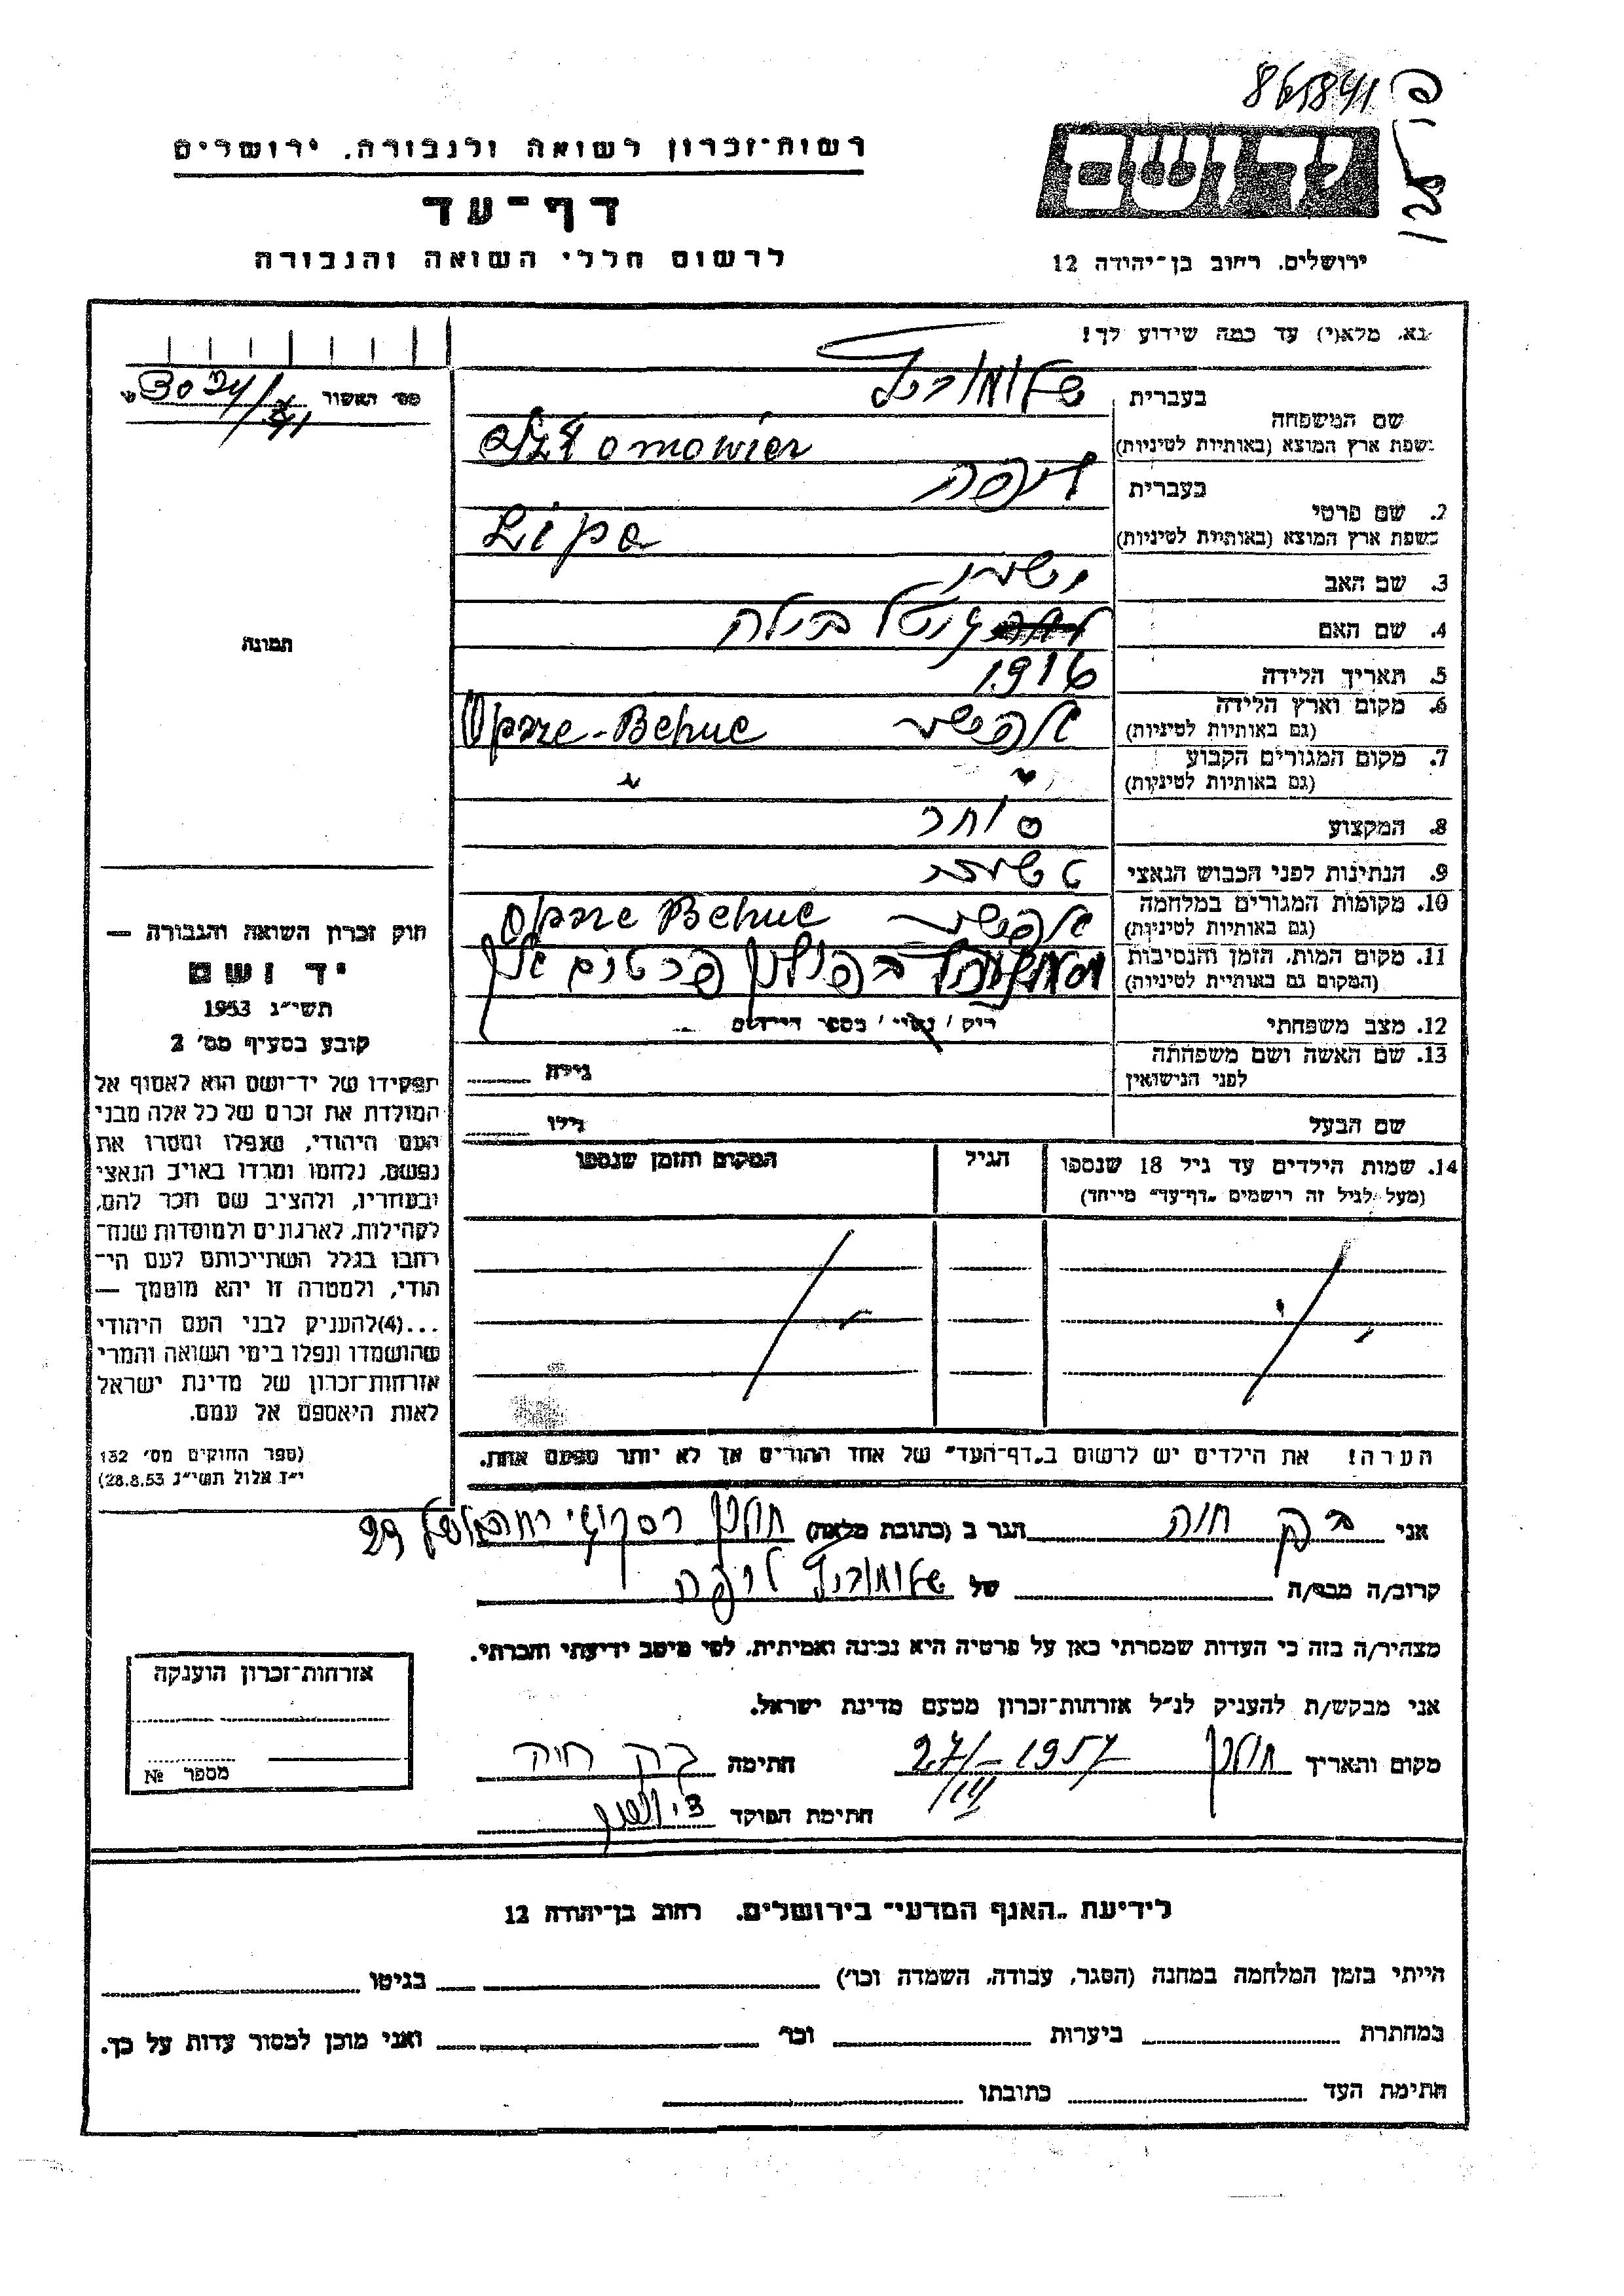 865841
רשות-זכרון לשואה ולגבורה. ירושלים
דף-עד
לרשום חללי השואה והגבורה
יד ושם
ירושלים. רחוב בן-יהודה 12
נא. מלא(י) עד כמה שידוע לך!
מס' האשור
שם המשפחה
בעברית
בשפת ארץ המוצא (באותיות לטיניות)
2. שם פרטי
בעברית
ליפה
בשפת ארץ המוצא (באותיות לטיניות) Lipa
3. שם האב
4. שם האם
5. תאריך הלידה 1916
6. מקום וארץ הלידה
(גם באותיות לטיניות)
7. מקום המגורים הקבוע
(גם באותיות לטיניות) " "
8. המקצוע סוחר
9. הנתינות לפני הכבוש הנאצי
10. מקומות המגורים במלחמה
(גם באותיות לטיניות)
11. מקום המות, הזמן והנסיבות בפולין פרטים אין
(המקום גם באותיות לטיניות)
12. מצב משפחתי
רוק / נשוי / מספר הילדים
13. שם האשה ושם משפחתה
לפני הנישואין
גילה
שם הבעל גילו
14. שמות הילדים עד גיל 18 שנספו
(מעל לגיל זה רושמים „דף-עד" מייחד)
הגיל
המקום והזמן שנספו
הערה! את הילדים יש לרשום ב„דף-העד" של אחד ההורים אך לא יותר מפעם אחת.
תמונה
חוק זכרון השואה והגבורה —
יד ושם
תשי"ג 1953
קובע בסעיף מס' 2
תפקידו של יד-ושם הוא לאסוף אל
המולדת את זכרם של כל אלה מבני
העם היהודי, שנפלו ומסרו את
נפשם, נלחמו ומרדו באויב הנאצי
ובעוזריו, ולהציב שם וזכר להם,
לקהילות, לארגונים ולמוסדות שנח-
רבו בגלל השתייכותם לעם הי-
הודי, ולמטרה זו יהא מוסמך —
...(4)להעניק לבני העם היהודי
שהושמדו ונפלו בימי השואה והמרי
אזרחות-זכרון של מדינת ישראל
לאות היאספם אל עמם.
(ספר החוקים מס' 132
י"ז אלול תשי"ג 28.8.53)
אני בק חוה הגר ב (כתובת מלאה) חולון 29
קרוב/ה מכר/ה של ליפה
מצהיר/ה בזה כי העדות שמסרתי כאן על פרטיה היא נכונה ואמיתית, לפי מיטב ידיעתי והכרתי.
אני מבקש/ת להעניק לנ"ל אזרחות-זכרון מטעם מדינת ישראל.
מקום ותאריך חולון 27/III-1957 חתימה בק חוה
חתימת הפוקד
אזרחות-זכרון הוענקה
מספר №
לידיעת „האגף המדעי" בירושלים. רחוב בן-יהודה 12
הייתי בזמן המלחמה במחנה (הסגר, עבודה, השמדה וכו') בגיטו
במחתרת ביערות וכו' ואני מוכן למסור עדות על כך.
חתימת העד כתובתו